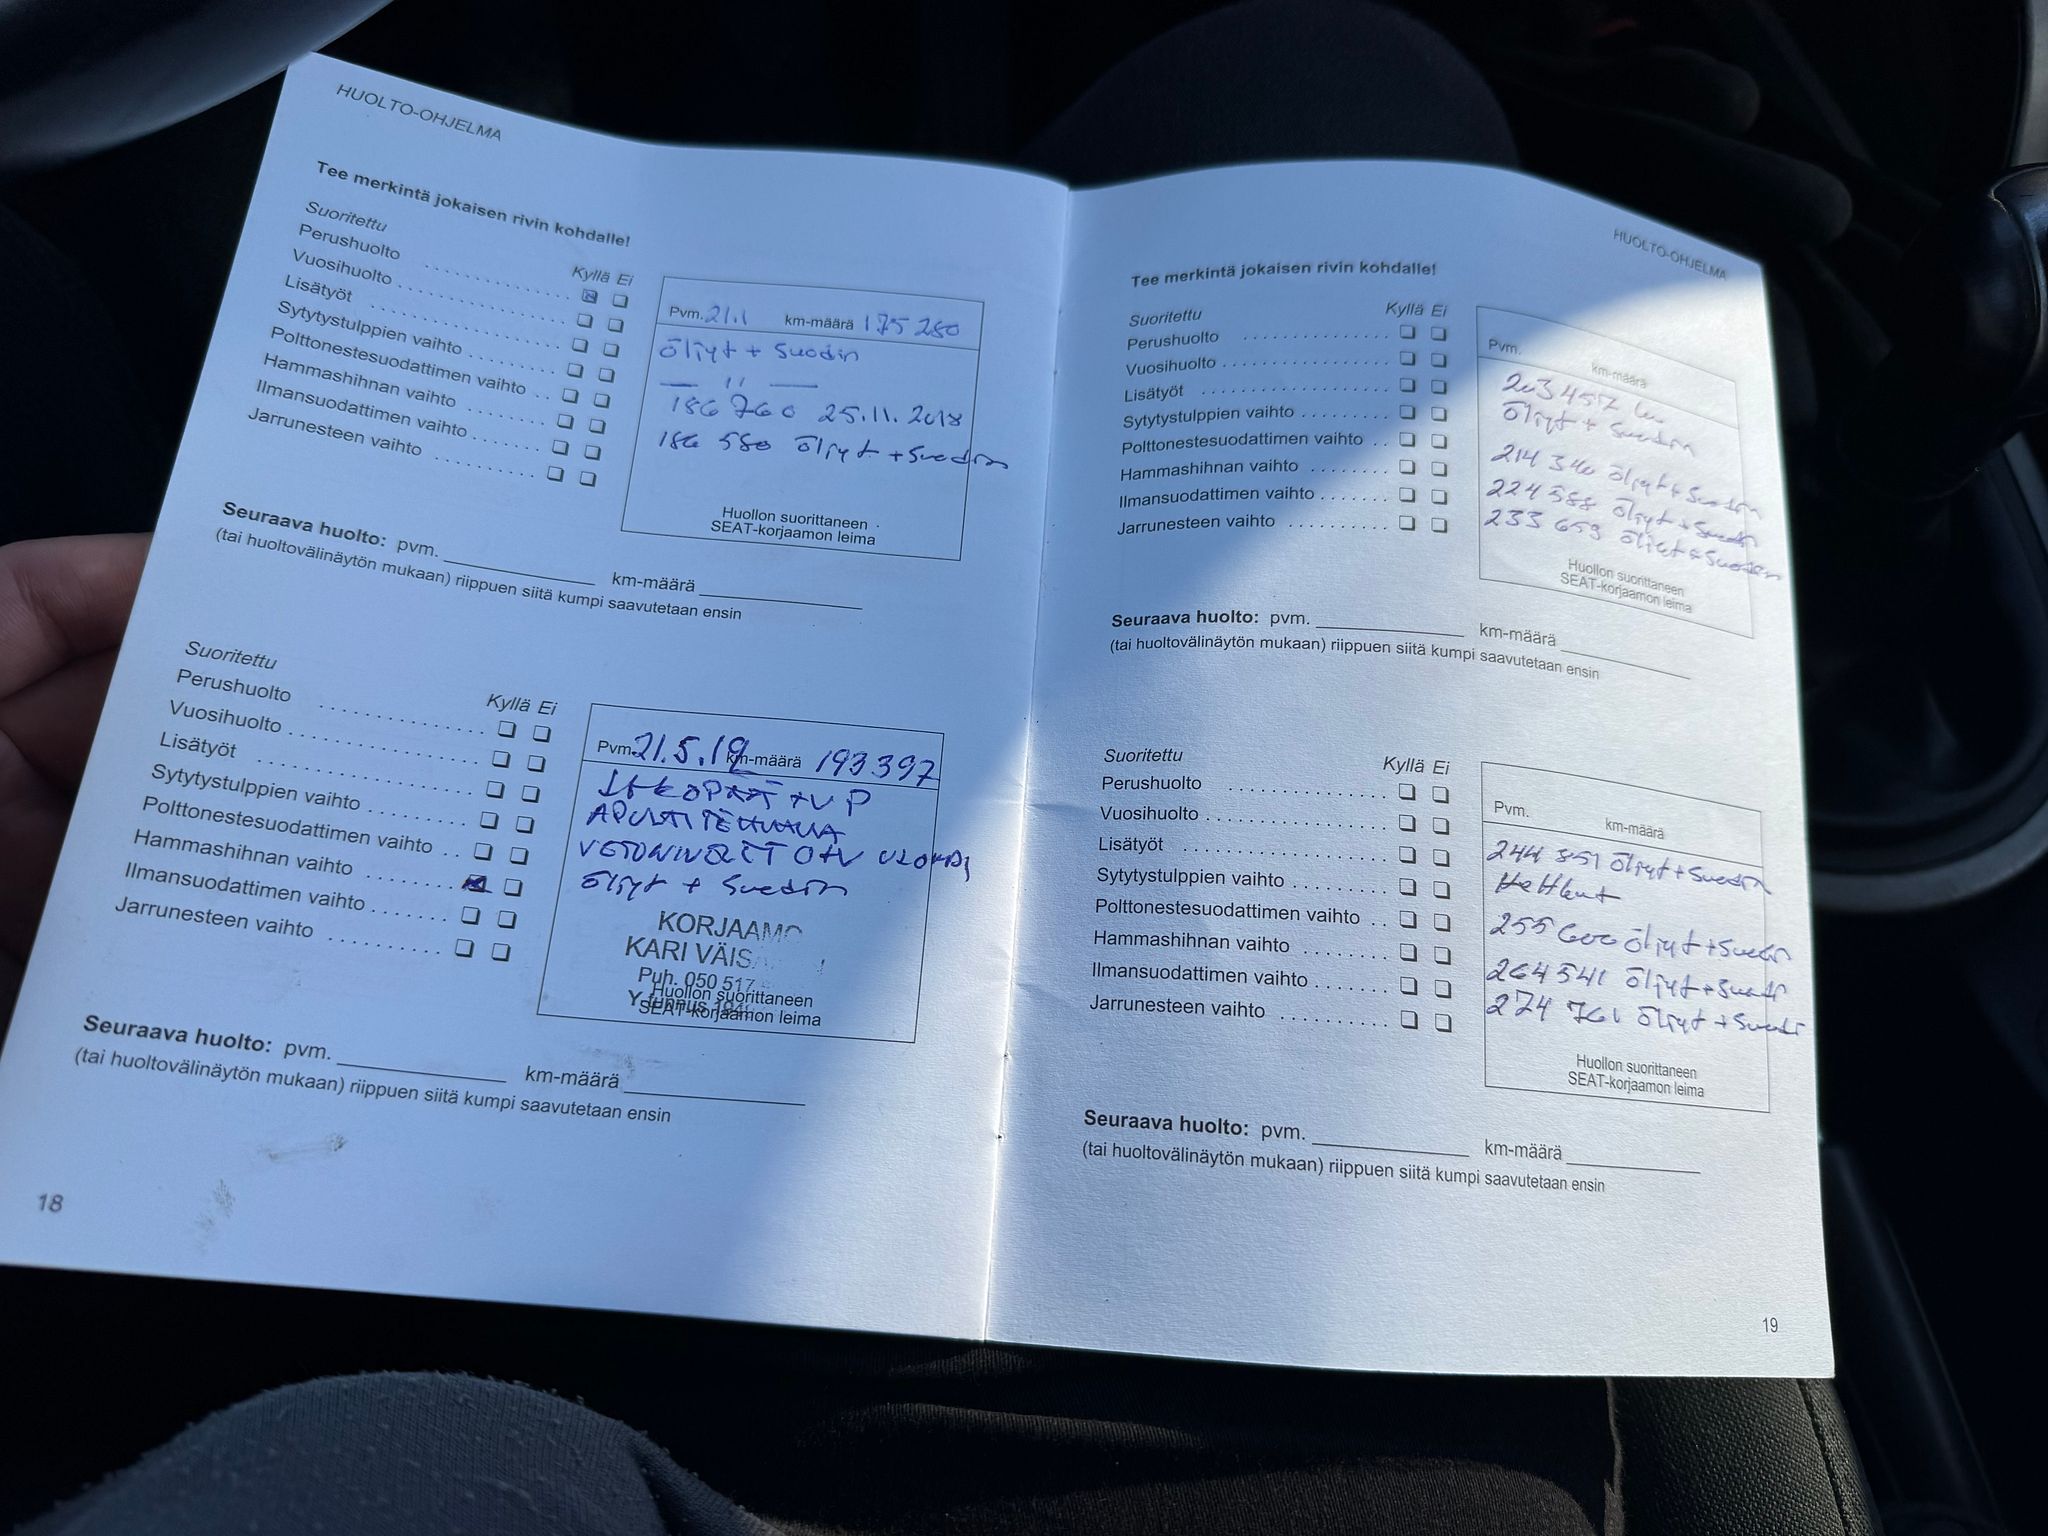 HUOLTO-OHJELMA
Tee merkintä jokaisen rivin kohdalle!
Suoritettu
Kyllä Ei
Perushuolto
Vuosihuolto
Lisätyöt
Sytytystulppien vaihto
Polttonestesuodattimen vaihto
Hammashihnan vaihto
Ilmansuodattimen vaihto
Jarrunesteen vaihto
Pvm. 21.1 km-määrä 175 280
öljyt + suodin
— " —
186 760 25.11.2018
186 580 öljyt + suodin
Huollon suorittaneen
SEAT-korjaamon leima
Seuraava huolto: pvm. km-määrä
(tai huoltovälinäytön mukaan) riippuen siitä kumpi saavutetaan ensin
Suoritettu
Kyllä Ei
Perushuolto
Vuosihuolto
Lisätyöt
Sytytystulppien vaihto
Polttonestesuodattimen vaihto
Hammashihnan vaihto
Ilmansuodattimen vaihto
Jarrunesteen vaihto
Pvm. 21.5.19 km-määrä 193397
öljyt + suodin
KORJAAMO
KARI
Puh. 050 517
Huollon suorittaneen
SEAT-korjaamon leima
Seuraava huolto: pvm. km-määrä
(tai huoltovälinäytön mukaan) riippuen siitä kumpi saavutetaan ensin
18
HUOLTO-OHJELMA
Tee merkintä jokaisen rivin kohdalle!
Suoritettu
Kyllä Ei
Perushuolto
Vuosihuolto
Lisätyöt
Sytytystulppien vaihto
Polttonestesuodattimen vaihto
Hammashihnan vaihto
Ilmansuodattimen vaihto
Jarrunesteen vaihto
Pvm. km-määrä
203457 km
öljyt + suodin
214 340 öljyt + suodin
224 588 öljyt + suodin
233 659 öljyt + suodin
Huollon suorittaneen
SEAT-korjaamon leima
Seuraava huolto: pvm. km-määrä
(tai huoltovälinäytön mukaan) riippuen siitä kumpi saavutetaan ensin
Suoritettu
Kyllä Ei
Perushuolto
Vuosihuolto
Lisätyöt
Sytytystulppien vaihto
Polttonestesuodattimen vaihto
Hammashihnan vaihto
Ilmansuodattimen vaihto
Jarrunesteen vaihto
Pvm. km-määrä
244 851 öljyt + suodin
255 600 öljyt + suodin
264 541 öljyt + suodin
274 761 öljyt + suodin
Huollon suorittaneen
SEAT-korjaamon leima
Seuraava huolto: pvm. km-määrä
(tai huoltovälinäytön mukaan) riippuen siitä kumpi saavutetaan ensin
19